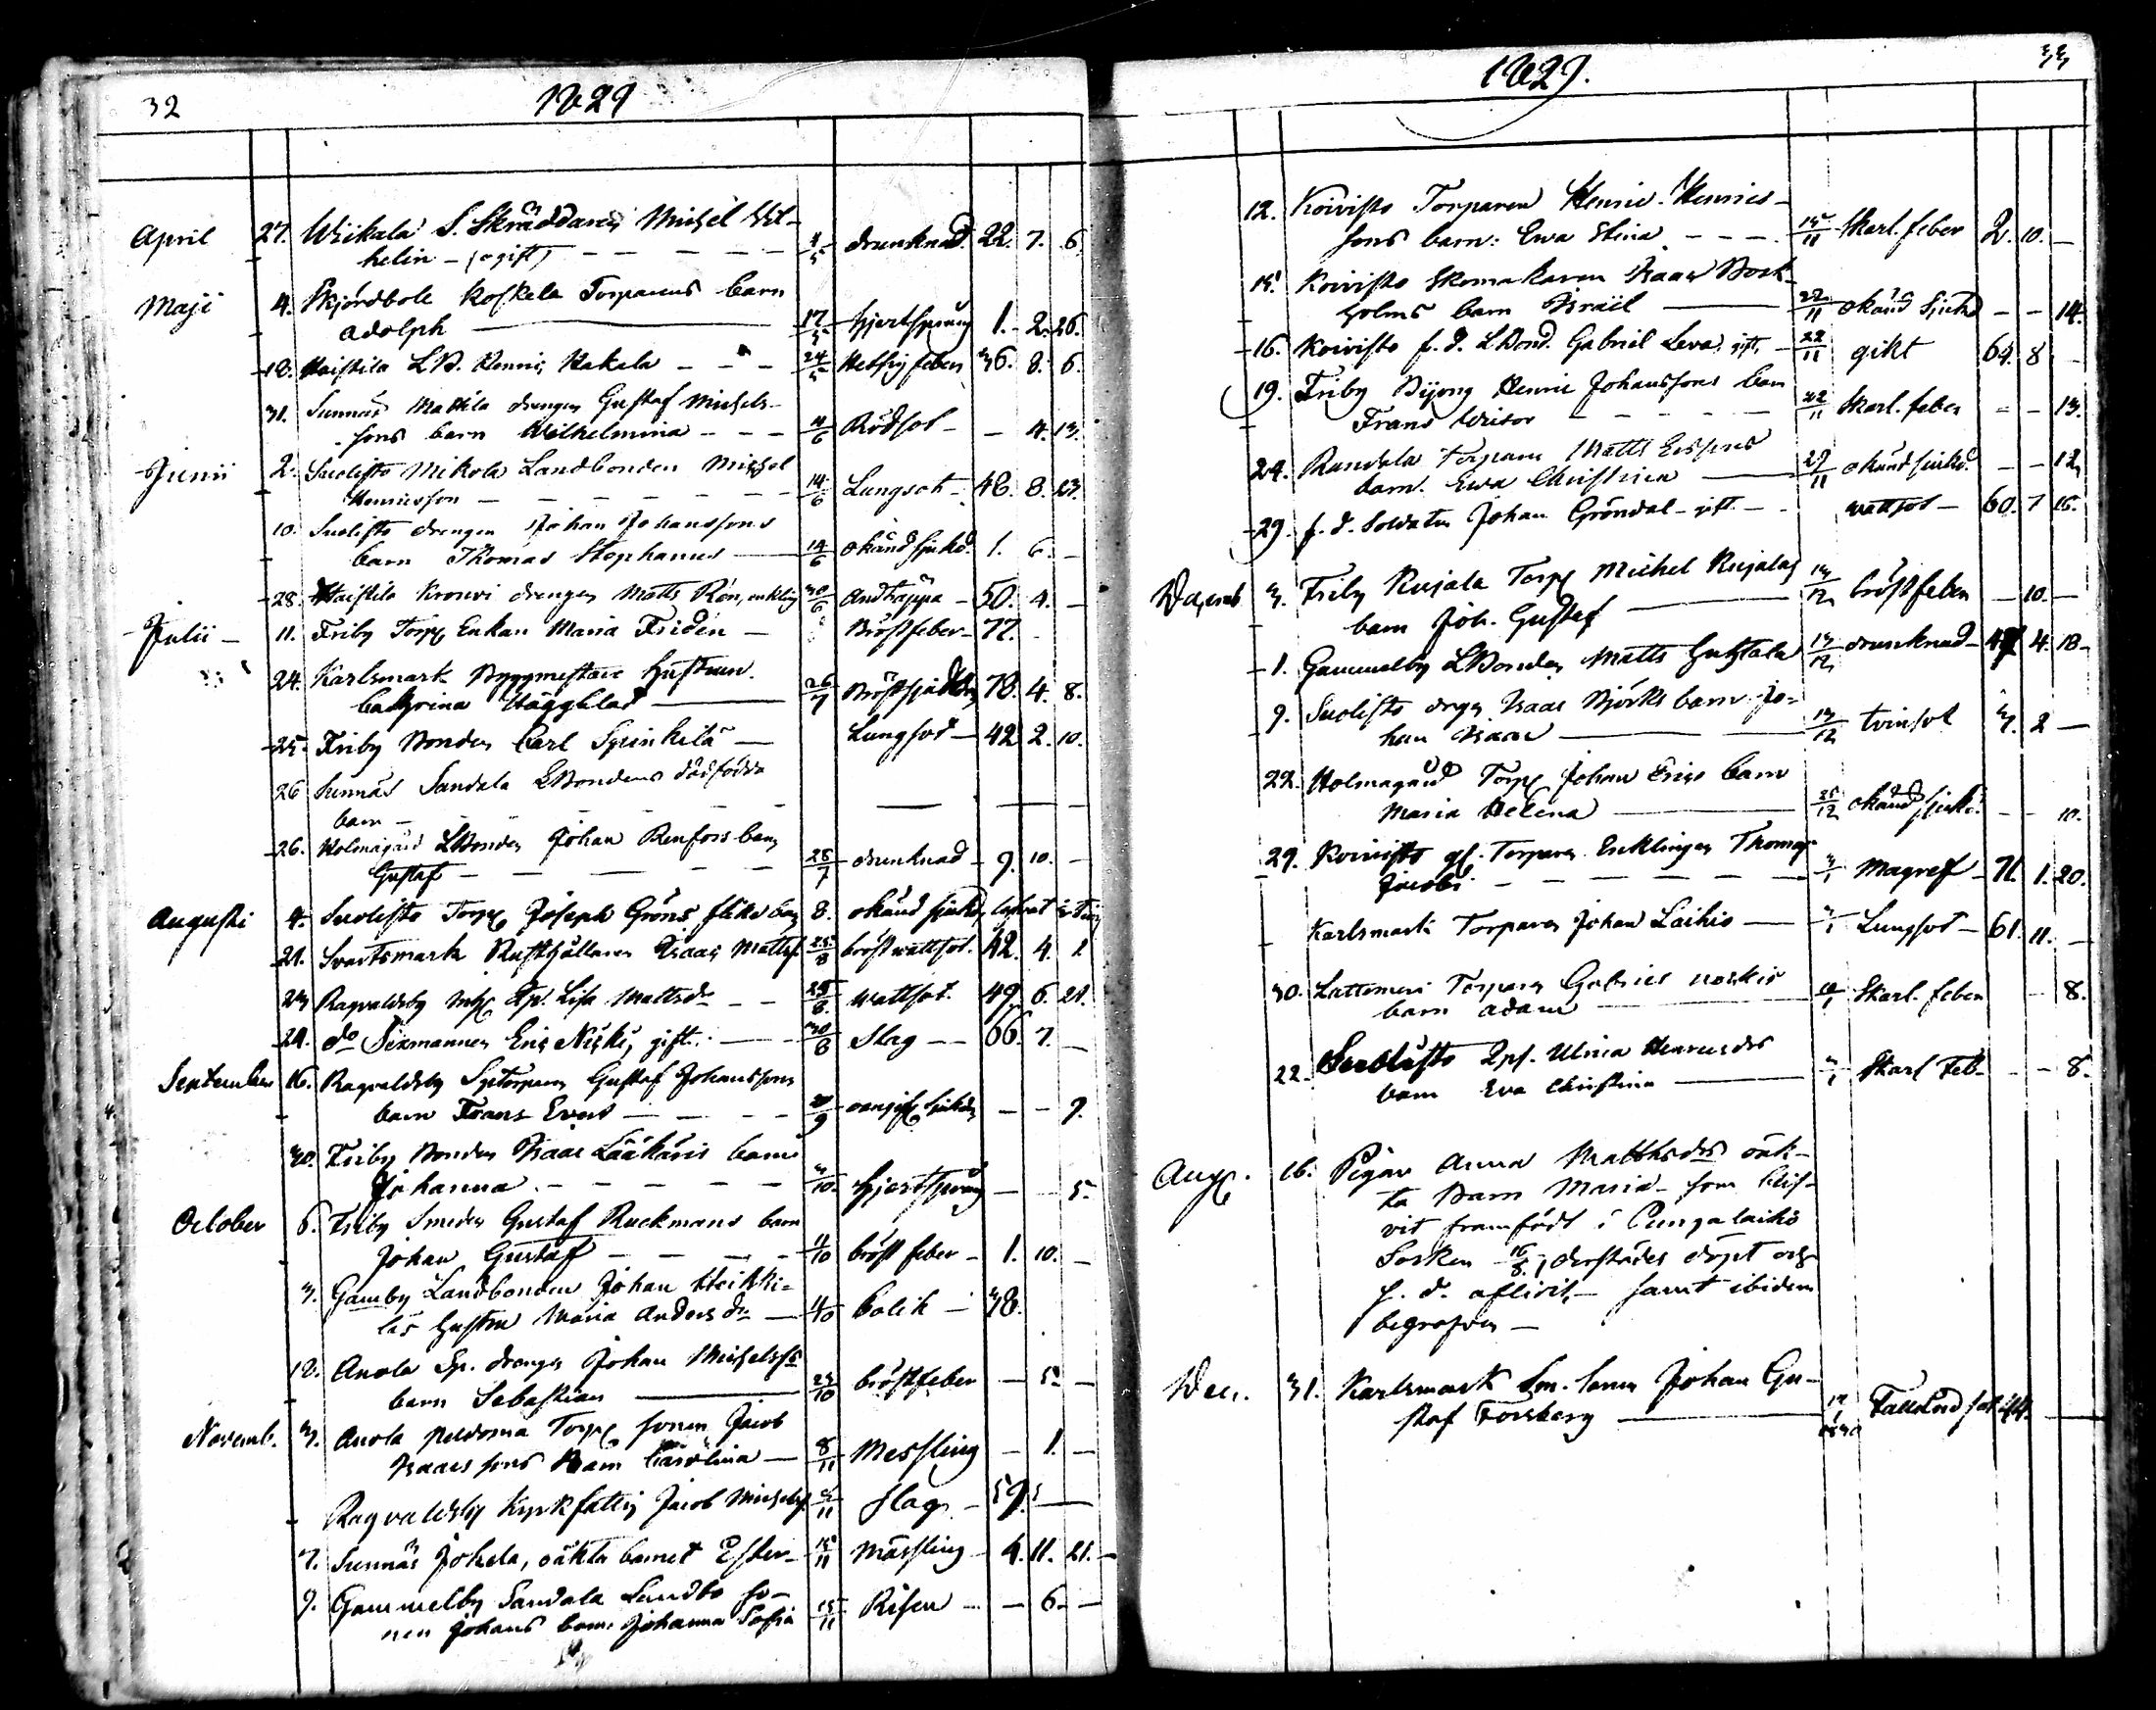 32
1829
April 27. Wiikala S. Skräddaren Michel Wil-
helin - (ogift) - - - - - 4/5 drunknad. 22. 7. 6.
Maji 4. Skjördbole Koskela Torparens barn
Adolph 17/5 hjertsprång 1. 2. 26.
18. Haistila LB. Henric Kakala - - - 24/5 Hetsig feber 36. 8. 6.
31. Sunnäs Mattila drengen Gustaf Michels-
sons barn Wilhelmina - - - 4/6 Rödsot - - 4. 13.
Junii 2. Suolisto Mikola Landbonden Michel
Henricsson - - - - - - - 14/6 Lungsot - 48. 8. 23.
10. Suolisto drengen Johan Johanssons
barn Thomas Stephanus 14/6 okänd sjukd. 1. 6. -
28. Haistila Kronvi drengen Matts Rön, enkling 30/6 Andtäppa - 50. 4. -
Julii - 11. Friby Torp. Enkan Maria Fridén - Bröstfeber - 77.
24. Karlsmark Byggmästare hustrun
Cathrina Häggblad 26/7 Bröstsjukdom 78. 4. 8.
25. Friby Bonden Carl Sprinkilä - Lungsot - 42 2. 10.
26 Sunnäs Sandala LBondens dödfödda
barn -
26. Holmagård LBonden Johan Renfors barn
Gustaf - - - - - 28/7 drunknad - 9. 10. -
Augusti 4. Suolisto Torp. Joseph Gröns flicko barn 8. okänd sjukd. lefvat 2 tim
21. Svartsmark Rusthållaren Isaac Mattss. 25/8 bröstwattsot. 42. 4. 1
23 Ragvaldsby Lisa Mattsdr - - 28/8 Wattsot. 49. 6. 21.
24. do Sexmannen Eric Niski, gift. - 30/8 Slag - - 66. 7. -
September 16. Ragvaldsby Gustaf Johanssons
barn Frans Evert - - - - 20/9 oangif. sjukdom - - 9.
30. Friby Bonden Isaac Lääkäris barn
Johanna - - - - - 4/10 hjertsprång - - 5.
October 6. Friby Smeden Gustaf Ruckmans barn
Johan Gustaf - - - - 11/10 bröst feber - 1. 10. -
7. Gamby Landbonden Johan Heikki-
läs hustru Maria Andersdr - 11/10 Colik - 38.
12. Anola Sp. drengen Johan Michelss.
barn Sebastian 23/10 bröstfeber - 5. -
Novemb. 3. Anola Peldoma Torp. sonen Jacob
Isaacssons Barn Carolina - 8/11 Messling - 1. -
Ragvaldsby Kyrkfattig Jacob Michelss. 8/11 Slag - 59.
7. Sunnäs Jokela, oäkta barnet Ester - 15/11 Mässling - 4. 11. 21.
9. Gammelby Sandala Landbo so-
nen Johans barn Johanna Sofia 15/11 Risen - - 6. -
1829.
33
12. Koivisto Torparen Henric Henrics-
sons barn: Ewa Stina - - - 15/11 Skarl. feber 2. 10. -
15. Koivisto Skomakaren Isaac Bock-
holms barn Israël 22/11 okänd sjukd - - 14.
16. Koivisto f. d. LBond. Gabriel Leva, gift, - 22/11 gikt 64. 8 -
19. Friby Henric Johanssons barn
Frans Victor - - - - - 22/11 Skarl. feber - - 13.
24. Randala Torparen Matts Erssons
barn. Ewa Christina 29/11 okänd sjukd. - - 12
29. f. d. Soldaten Johan Gröndal - gift. - - wattsot - 60. 7 15.
Decemb 3. Friby Rujala Torp. Michel Rujalas
barn Joh. Gustaf 13/12 bröstfeber - 10. -
1. Gammelby LBonden Matts Huhtala 13/12 drunknad - 47 4. 18 -
9. Suolisto dreng. Isaac Björks barn Jo-
han Isaac 13/12 tvinsot 3. 2 -
22. Holmagård Torp. Johan Erics barn
Maria Helena 25/12 okänd sjukd. - - 10.
29. Koivisto gl. Torparen Enklingen Thomas
Jacobs - - - - - - 3/1 Magref - 71. 1. 20.
Karlsmark Torparen Johan Laihio - 3/1 Lungsot - 61. 11. -
30. Lattomeri Torparen Gabriel
barn Adam 10/1 Skarl. feber - 8.
22. Suolisto Ulrica Henricsdrs
barn Eva Christina 3/1 Skarl feb - - - 8.
Aug. 16. Pigan Anna Matthsdrs oäk-
ta Barn Maria - som blif-
vit framfödt i Pungalaitio
Socken 16/8, derstädes döpt och
s. d. aflidit, - samt ibidem
begrafven -
Dec. 31. Karlsmark Sm. sonen Johan Gu-
staf Forsberg 17/1 1830 Fallandsot 14. -